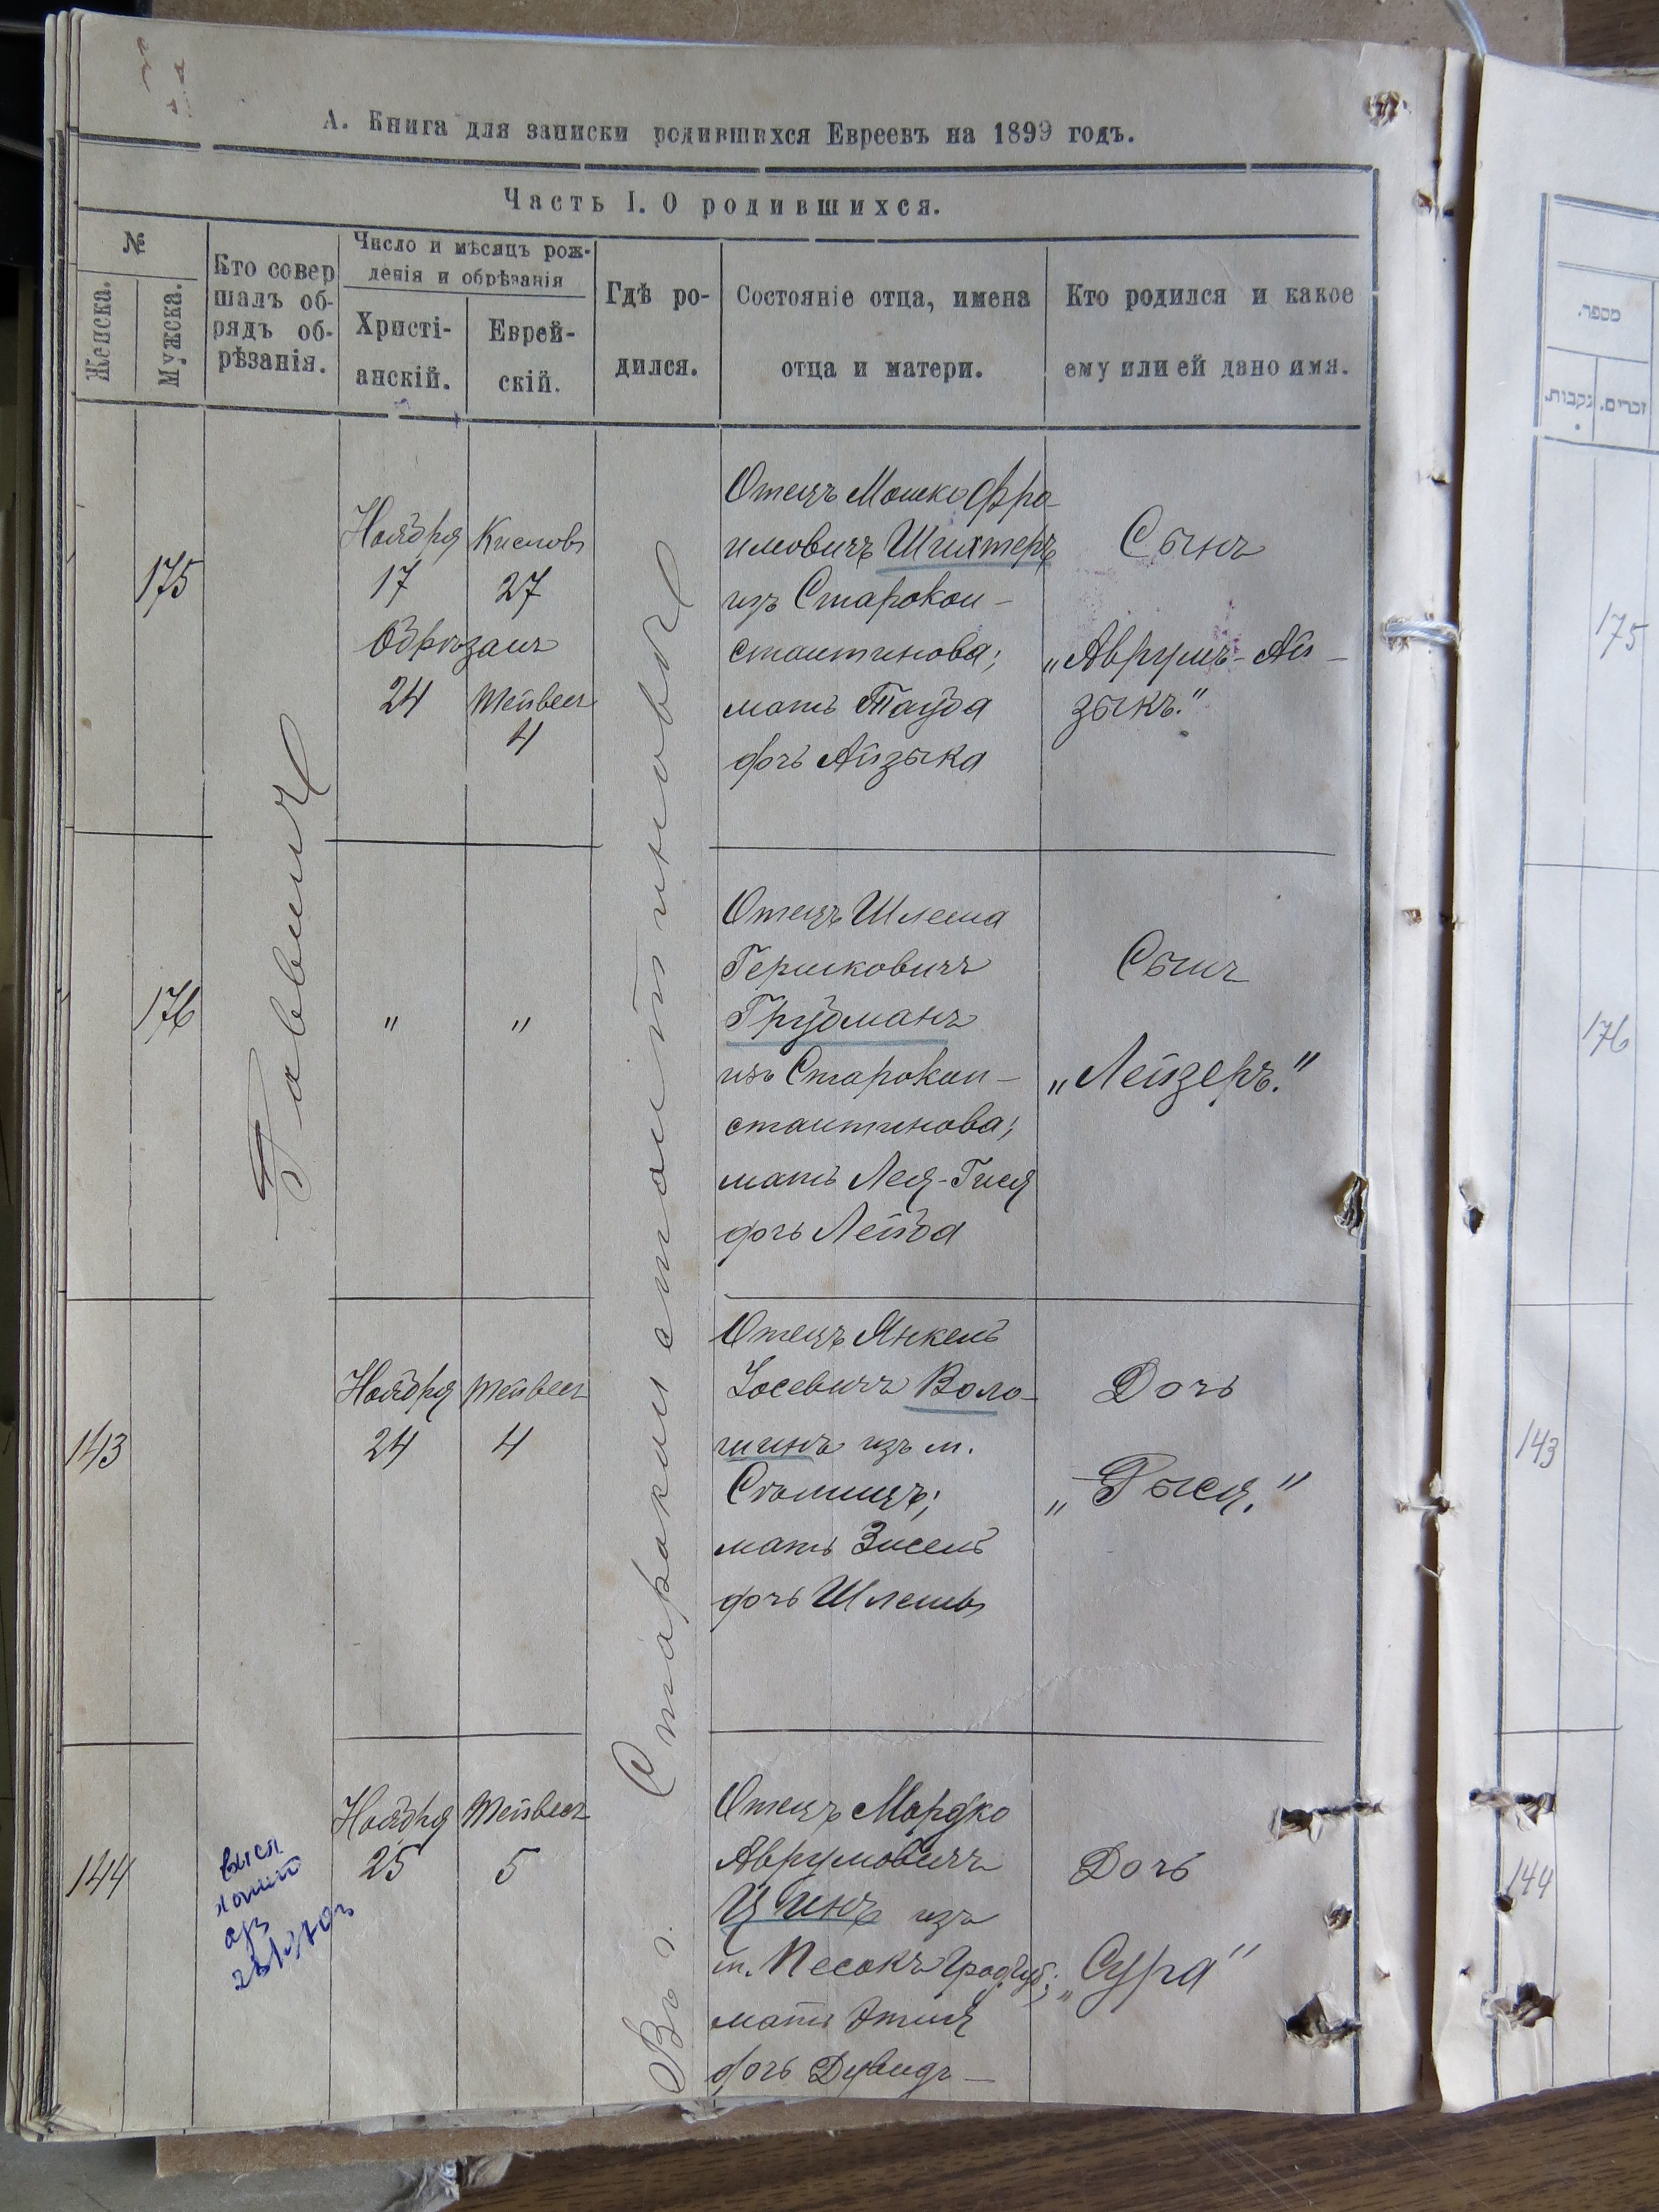 А. Книга для записки родившихся Евреевъ на 1899 годъ.
Часть I. О родившихся.
№
Женска.
Мужска.
Кто совер
шалъ об-
рядъ об-
рѣзанія.
Число и мѣсяцъ рож-
денія и обрѣзанія
Христі-
анскій.
Еврей-
скій.
Гдѣ ро-
дился.
Состояніе отца, имена
отца и матери.
Кто родился и какое
ему или ей дано имя.
175
Ноября
17
Кислов
27
Обрѣзанъ
24
Тейвесъ
4
Отецъ Мошко Фро-
имовичъ Шихтеръ
изъ Старокон-
стантинова;
мать Тауба
дочь Айзыка
Сынъ
„Аврумъ-Ай-
зыкъ."
176
"
"
Отецъ Шлема
Гершковичъ
Грубманъ
изъ Старокон-
стантинова;
мать Лея-Гися
дочь Лейба
Сынъ
„Лейзеръ."
143
Ноября
24
Тейвесъ
4
Отецъ Янкель
Іосевичъ Воло-
шинъ изъ м.
мать Зисель
дочь Шлемы
Дочь
„Рыся."
144
Ноября
25
Тейвесъ
5
Отецъ Мордко
Аврумовичъ
изъ
м. Песокъ Грод. губ.;
мать Этля
дочь Дувидъ
Дочь
„Сура"
Въ г. Старокомстантиновѣ
מספר.
נקבות.
זכרים.
175
176
143
144